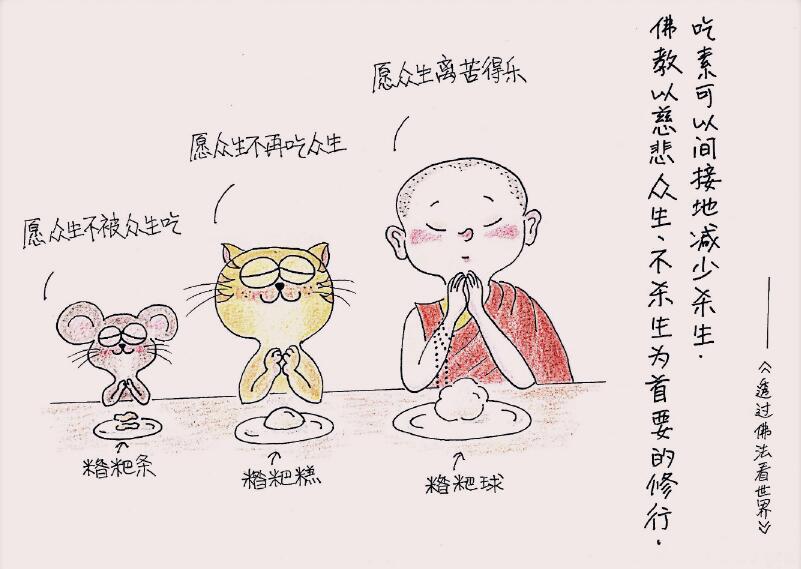 吃素可以间接地减少杀生.
佛教以慈悲众生、不杀生为首要的修行.
——《透过佛法看世界》
愿众生离苦得乐
愿众生不再吃众生
愿众生不被众生吃
糌粑条
糌粑糕
糌粑球